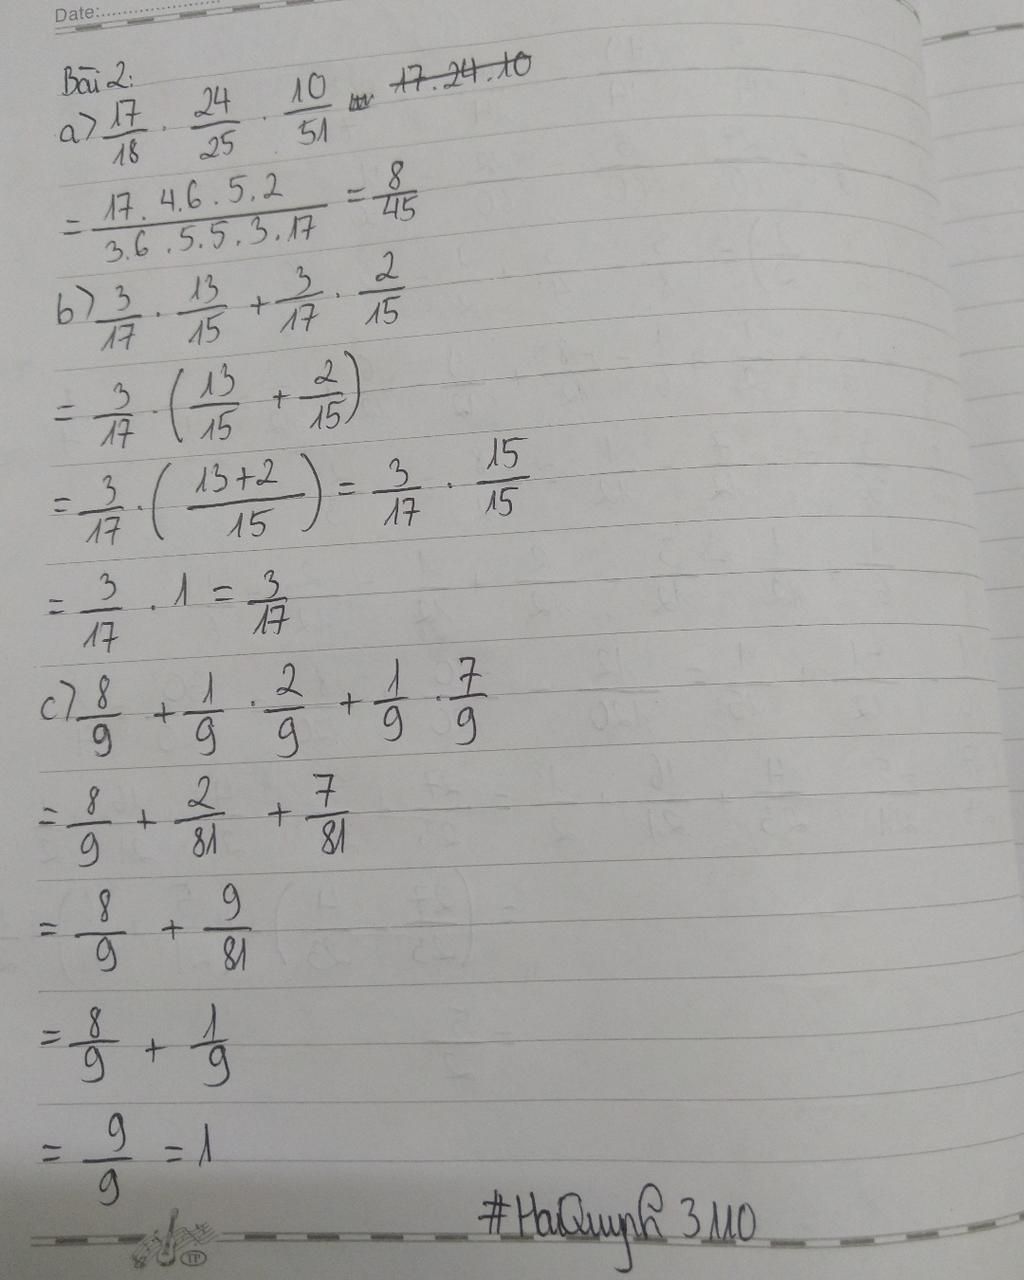 Date:
Bài 2:
a) 17/18 . 24/25 . 10/51 17.24.10
= 17.4.6.5.2/3.6.5.5.3.17 = 8/45
b) 3/17 . 13/15 + 3/17 . 2/15
= 3/17 . (13/15 + 2/15)
= 3/17 . (13+2/15) = 3/17 . 15/15
= 3/17 . 1 = 3/17
c) 8/9 + 1/9 . 2/9 + 1/9 . 7/9
= 8/9 + 2/81 + 7/81
= 8/9 + 9/81
= 8/9 + 1/9
= 9/9 = 1
#HaQuynh 3110
TP